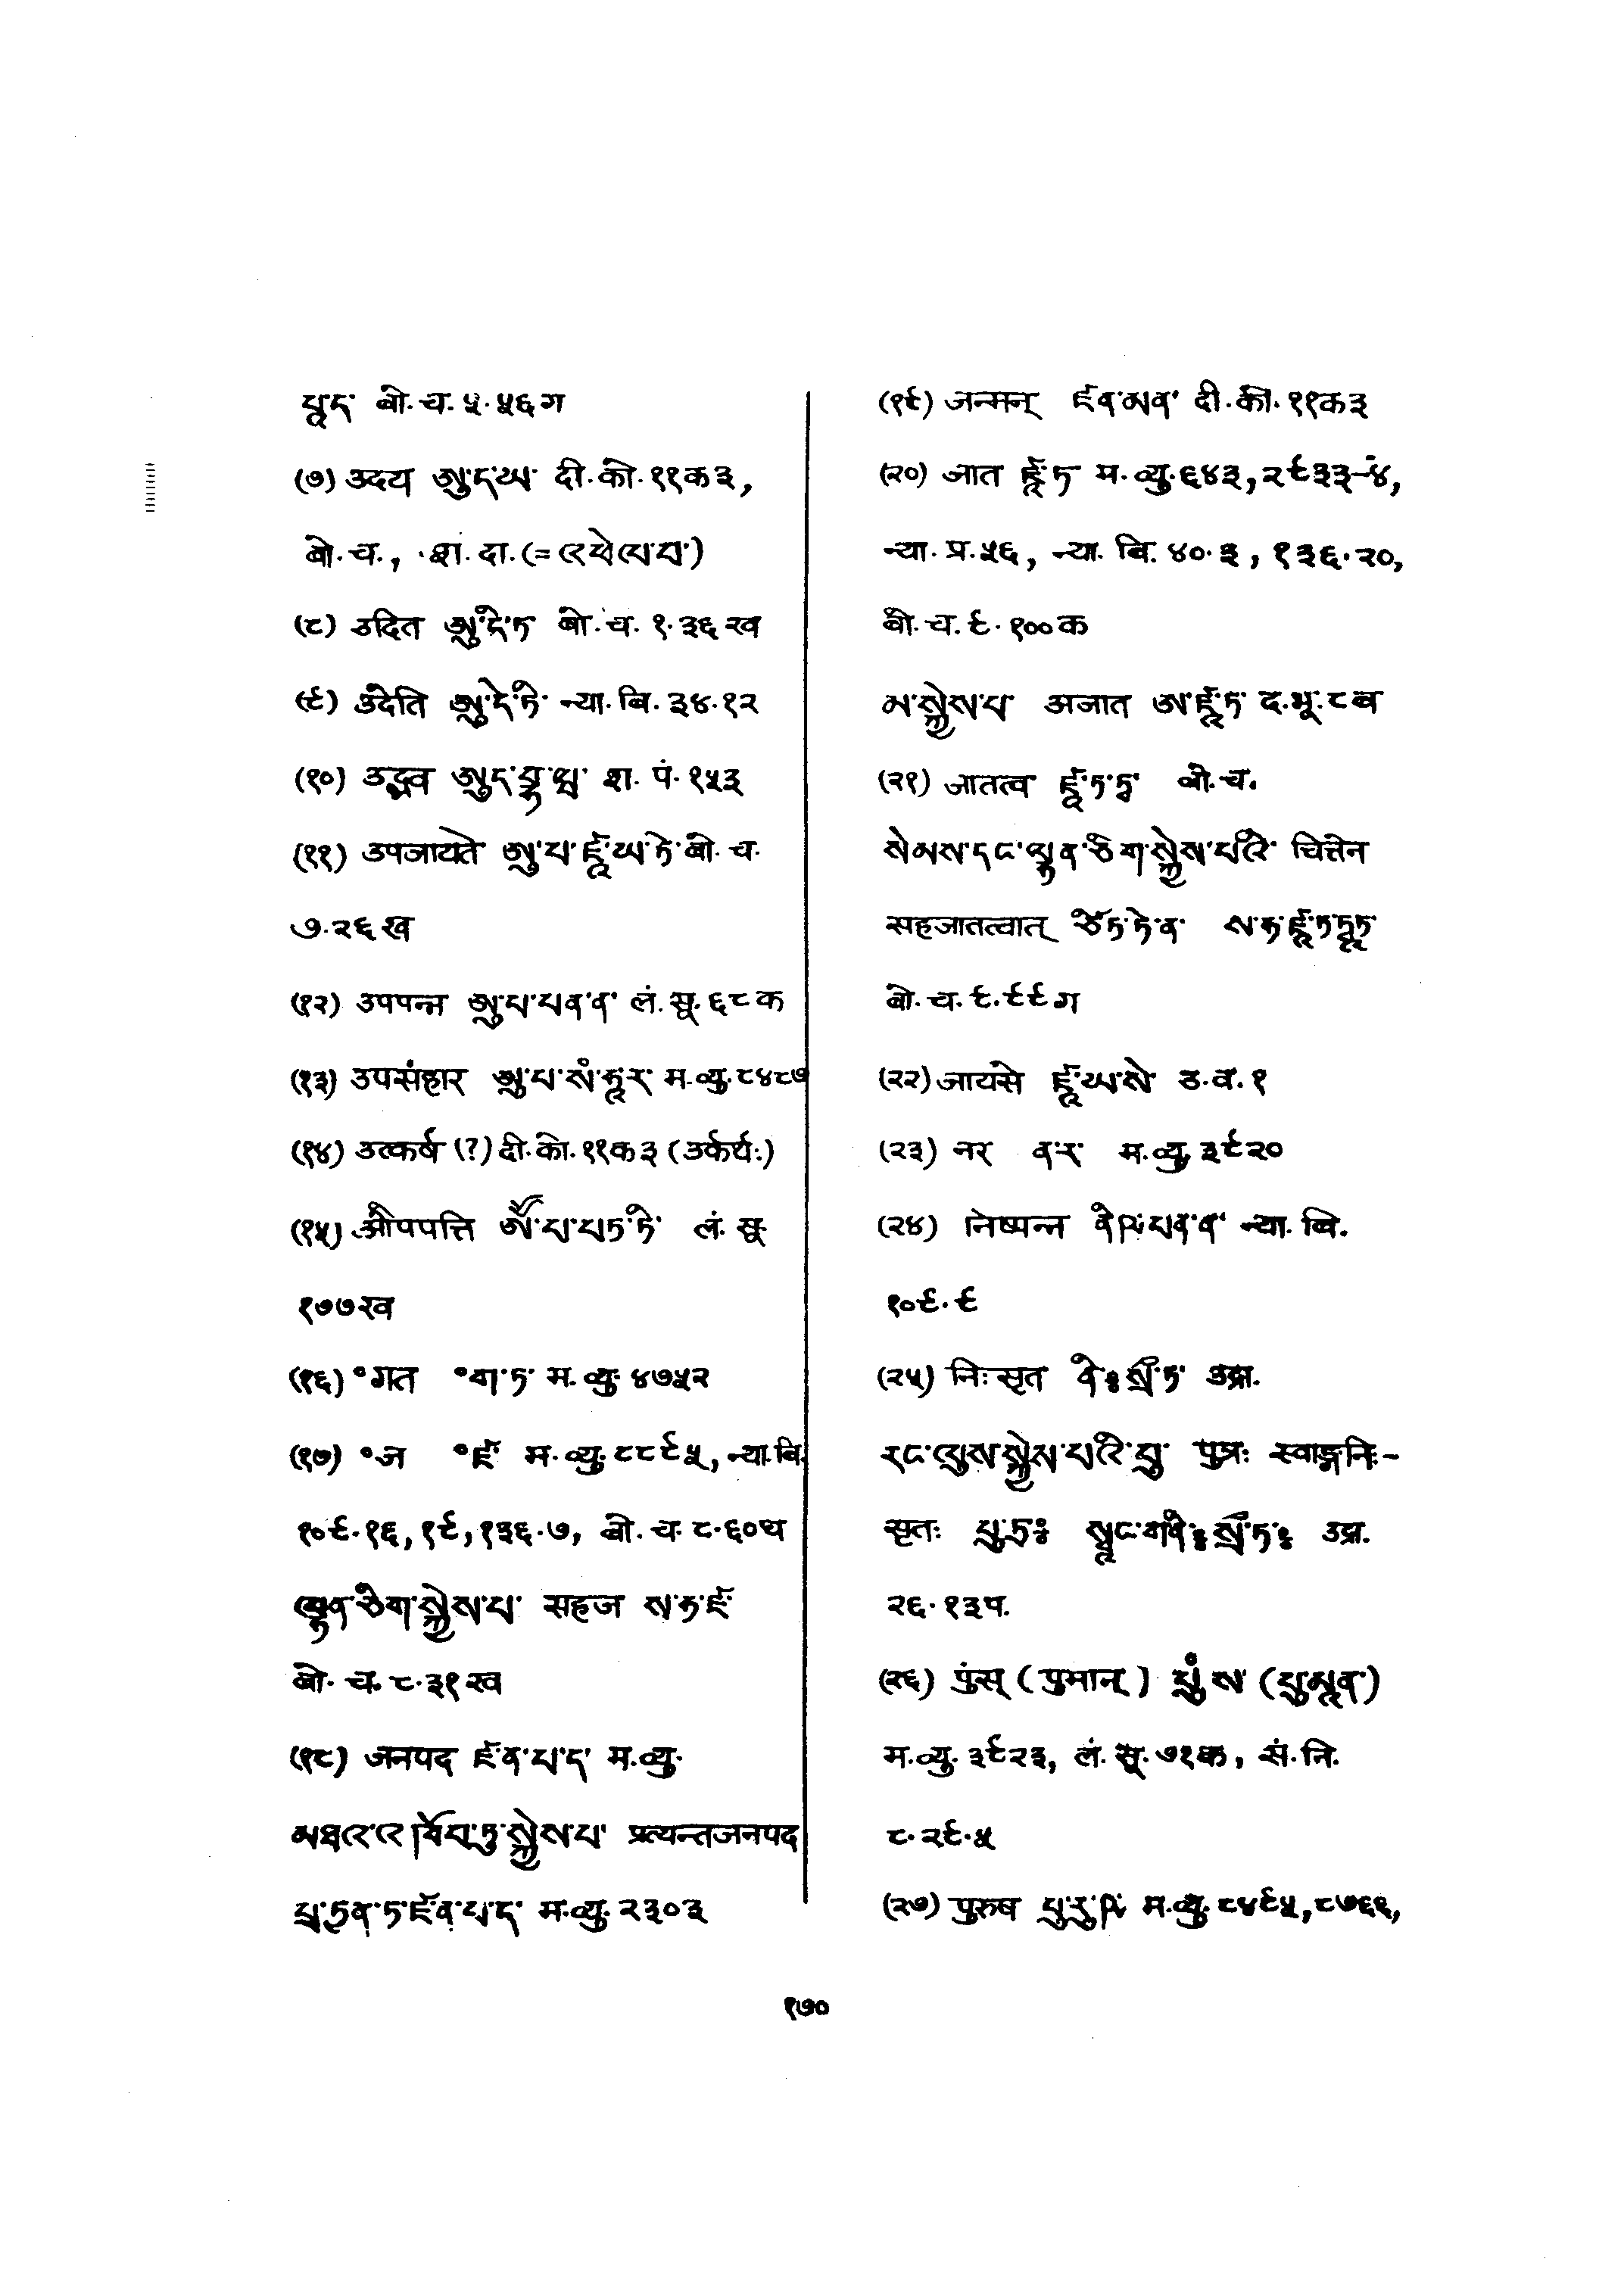 པཱད་ बो.च.५.५६ग
(७) उदय ཨུ་ད་ཡ་ दी.को.११क३,
बो.च., शा.दा.(=འཕེལ་བ་)
(८) उदित ཨུ་དི་ཏ बो.च.१.३६ख
(९) उदेति ཨུ་དེ་ཏི་ न्या.बि.३४.१२
(१०) उद्भव ཨུད་བྷ་ཝ་ शा.पं.१५३
(११) उपजायते ཨུ་པ་ཛཱ་ཡ་ཏེ་ बो.च.
७.२६ख
(१२) उपपन्न ཨུ་པ་པན་ན་ लं.सू.६८क
(१३) उपसंहार ཨུ་པ་སཾ་ཧཱར་ म.व्यु.८४८७
(१४) उत्कर्ष (?) दी.को.११क३ (उर्कर्यः)
(१५) औपपत्ति ཨཽ་པ་པཏ་ཏི་ लं.सू.
१७७ख
(१६) °गत °ག་ཏ་ म.व्यु.४७५२
(१७) °ज °ཛ म.व्यु.८८९५, न्या.बि.
१०९.१६,१९,१३६.७, बो.च.८.६०घ
ལྷན་ཅིག་སྐྱེས་པ་ सहज ས་ཧ་ཛ
बो.च.८.३१ख
(१८) जनपद ཛ་ན་པ་ད་ म.व्यु.
མཐའ་འཁོབ་ཏུ་སྐྱེས་པ་ प्रत्यन्तजनपद
པྲ་ཏྱན་ཏ་ཛ་ན་པ་ད་ म.व्यु.२३०३
(१९) जन्मन् ཛན་མན་ दी.को.११क३
(२०) जात ཛཱ་ཏ म.व्यु.६४३,२९३३-४,
न्या.प्र.५६, न्या.बि.४०.३, १३६.२०,
बो.च.९.१००क
མ་སྐྱེས་པ་ अजात ཨ་ཛཱ་ཏ་ द.भू.८ब
(२१) जातत्व ཛཱ་ཏ་ཏྭ་ बो.च.
སེམས་དང་ལྷན་ཅིག་སྐྱེས་པའི་ चित्तेन
सहजातत्वात् ཙིཏ་ཏེ་ན་ ས་ཧ་ཛཱ་ཏ་ཏྭཱཏ་
बो.च.९.९९ग
(२२) जायसे ཛཱ་ཡ་སེ་ उ.व.१
(२३) नर ན་ར་ म.व्यु.३९२०
(२४) निष्पन्न ནིཥ་པན་ན་ न्या.बि.
१०९.९
(२५) निःसृत ནིཿསྲྀ་ཏ་ उद्रा.
རང་ལུས་སྐྱེས་པའི་བུ་ पुत्रः स्वाङ्गनिः-
सृतः པུ་ཏྲཿ སྭཱང་གནིཿསྲྀ་ཏཿ उद्रा.
२६.१३प.
(२६) पुंस् (पुमान्) པུཾ་ས་ (པུམཱན་)
म.व्यु.३९२३, लं.सू.७१क, सं.नि.
८.२९.५
(२७) पुरुष པུ་རུ་ཥ་ म.व्यु.८४९५,८७६६,
१७०